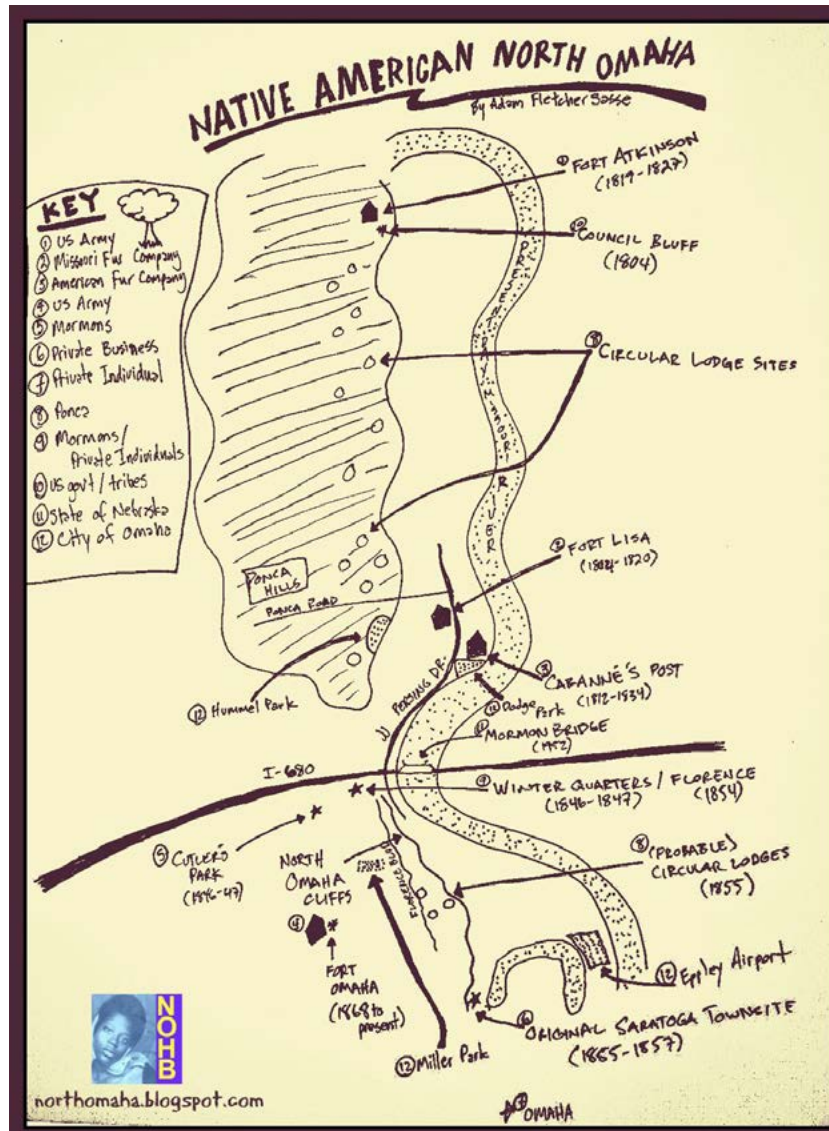 NATIVE AMERICAN NORTH OMAHA
By Adam Fletcher Sasse
KEY
① US Army
② Missouri Fur Company
③ American Fur Company
④ US Army
⑤ Mormons
⑥ Private Business
⑦ Private Individual
⑧ Ponca
⑨ Mormons/
Private Individuals
⑩ US govt/tribes
⑪ State of Nebraska
⑫ City of Omaha
① FORT ATKINSON
(1819-1827)
⑩ COUNCIL BLUFF
(1804)
PRESENT DAY MISSOURI RIVER
⑧ CIRCULAR LODGE SITES
FORT LISA
PONCA
HILLS
PONCA ROAD
⑫ Hummel Park
JJ PERSING DR.
③ CABANNÉ'S POST
(1812-1834)
⑫ Dodge
Park
⑪ MORMON BRIDGE
(1952)
I-680
⑨ WINTER QUARTERS / FLORENCE
(1846-1847) (1854)
⑤ CUTLER'S
PARK
(1846-47)
NORTH
OMAHA
CLIFFS
FLORENCE BLVD
⑧ (PROBABLE)
CIRCULAR LODGES
(1855)
④
FORT
OMAHA
(1868 to
present)
⑫ Miller Park
⑫ Eppley Airport
⑥ ORIGINAL SARATOGA TOWNSITE
(1855-1857)
OMAHA
NOHB
northomaha.blogspot.com